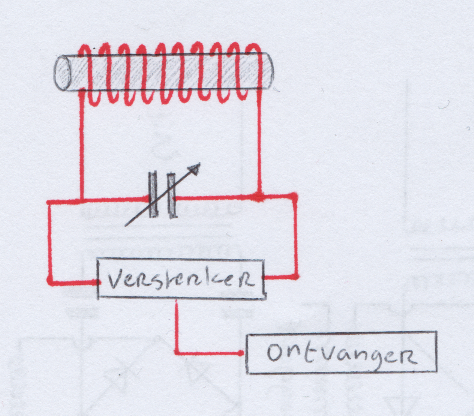 Versterker
Ontvanger